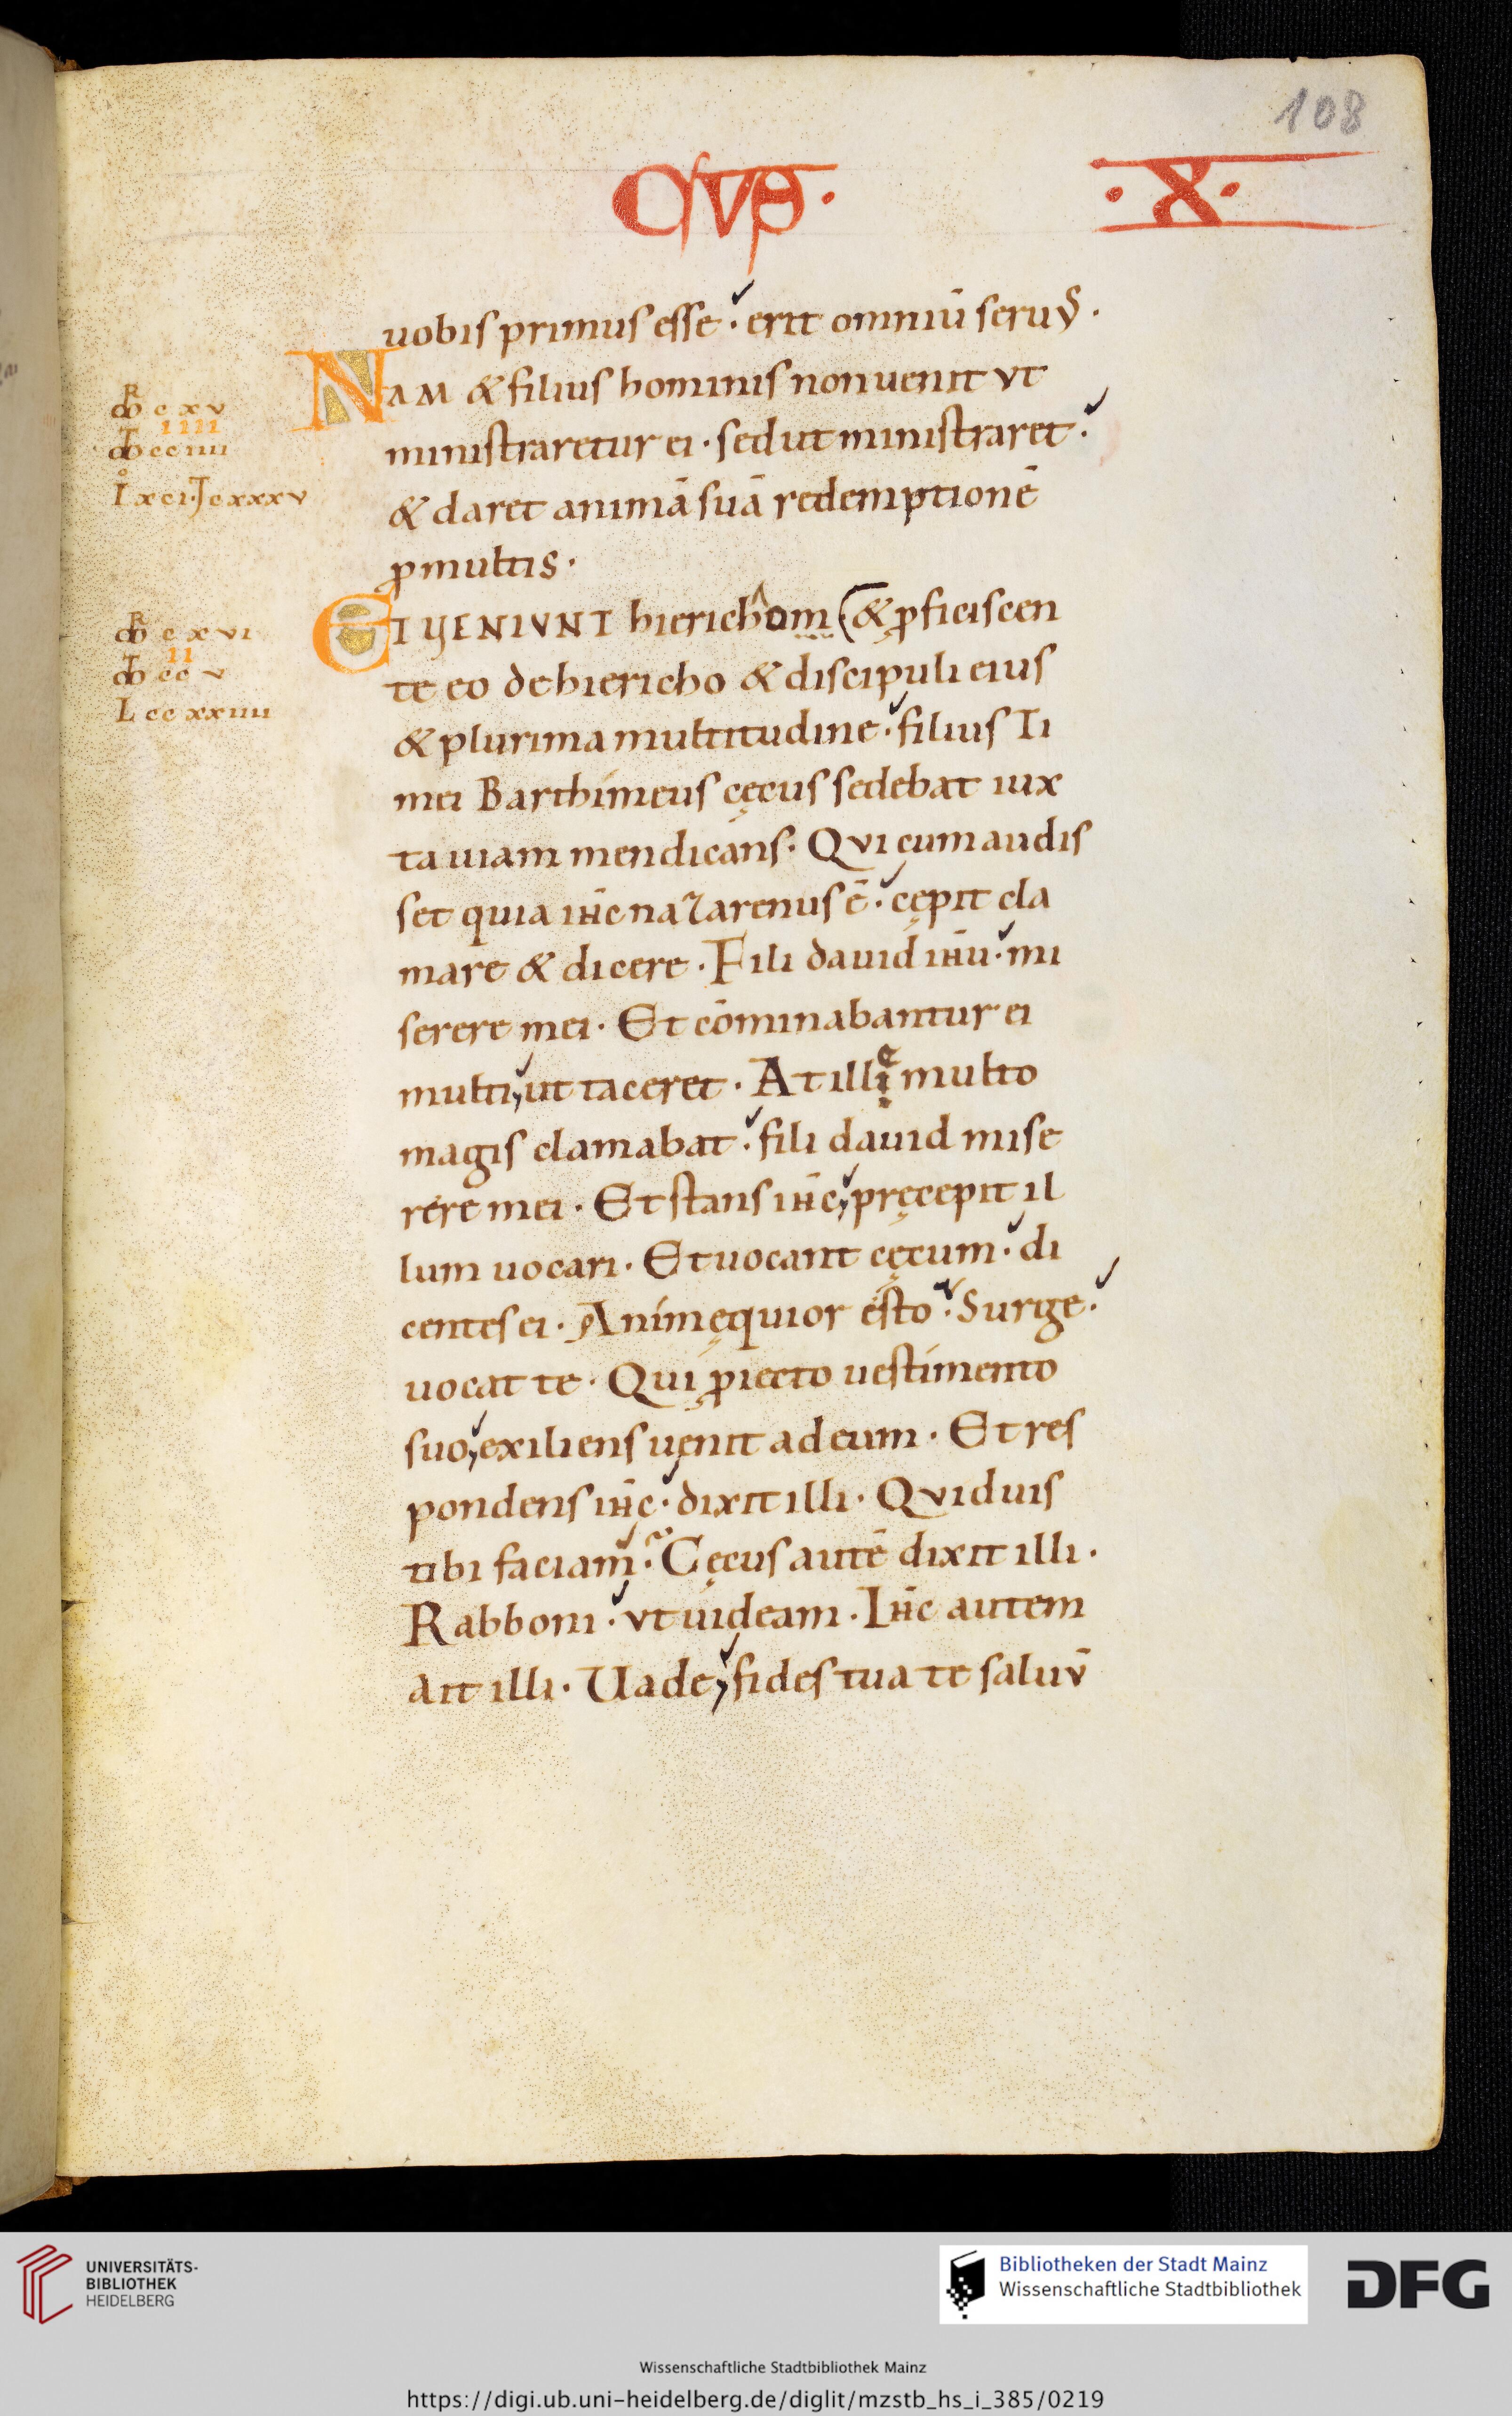 108
CVS·
·X·
uobis primus esse· erit omniū seruꝰ·
NAM & filius hominis non uenit vt
ministraretur ei· sed ut ministraret·
& daret animā suā redemptionē
ꝓ multis·
ET VENIVNT hierichom & ꝓficiscen
te eo de hiericho & discipuli eius
& plurima multitudine· filius Ti
mei Barthimeus cęcus sedebat iux
ta uiam mendicans· Qvi cum audis
set quia ihc̄ nazarenus ē· cępit cla
mare & dicere· Fili dauid ihū· mi
serere mei· Et cōminabantur ei
multi, ut taceret· At illi e multo
magis clamabat· fili dauid mise
rere mei· Et stans ihc̄, pręcepit il
lum uocari· Et uocant cęcum· di
centes ei· Animęquior esto· Surge·
uocat te· Qui ꝓiecto uestimento
suo, exiliens uenit ad eum· Et res
pondens ihc̄· dixit illi· Qvid uis
tibi faciam· Cęcus autē dixit illi·
Rabboni· vt uideam· Ihc̄ autem
ait illi· Uade, fides tua te saluū
R
cxv
IIII
cciiii
xci· J cxxxv
R
cxvi
II
ccv
L ccxxiiii
UNIVERSITÄTS-
BIBLIOTHEK
HEIDELBERG
Bibliotheken der Stadt Mainz
Wissenschaftliche Stadtbibliothek
DFG
Wissenschaftliche Stadtbibliothek Mainz
https://digi.ub.uni-heidelberg.de/diglit/mzstb_hs_i_385/0219